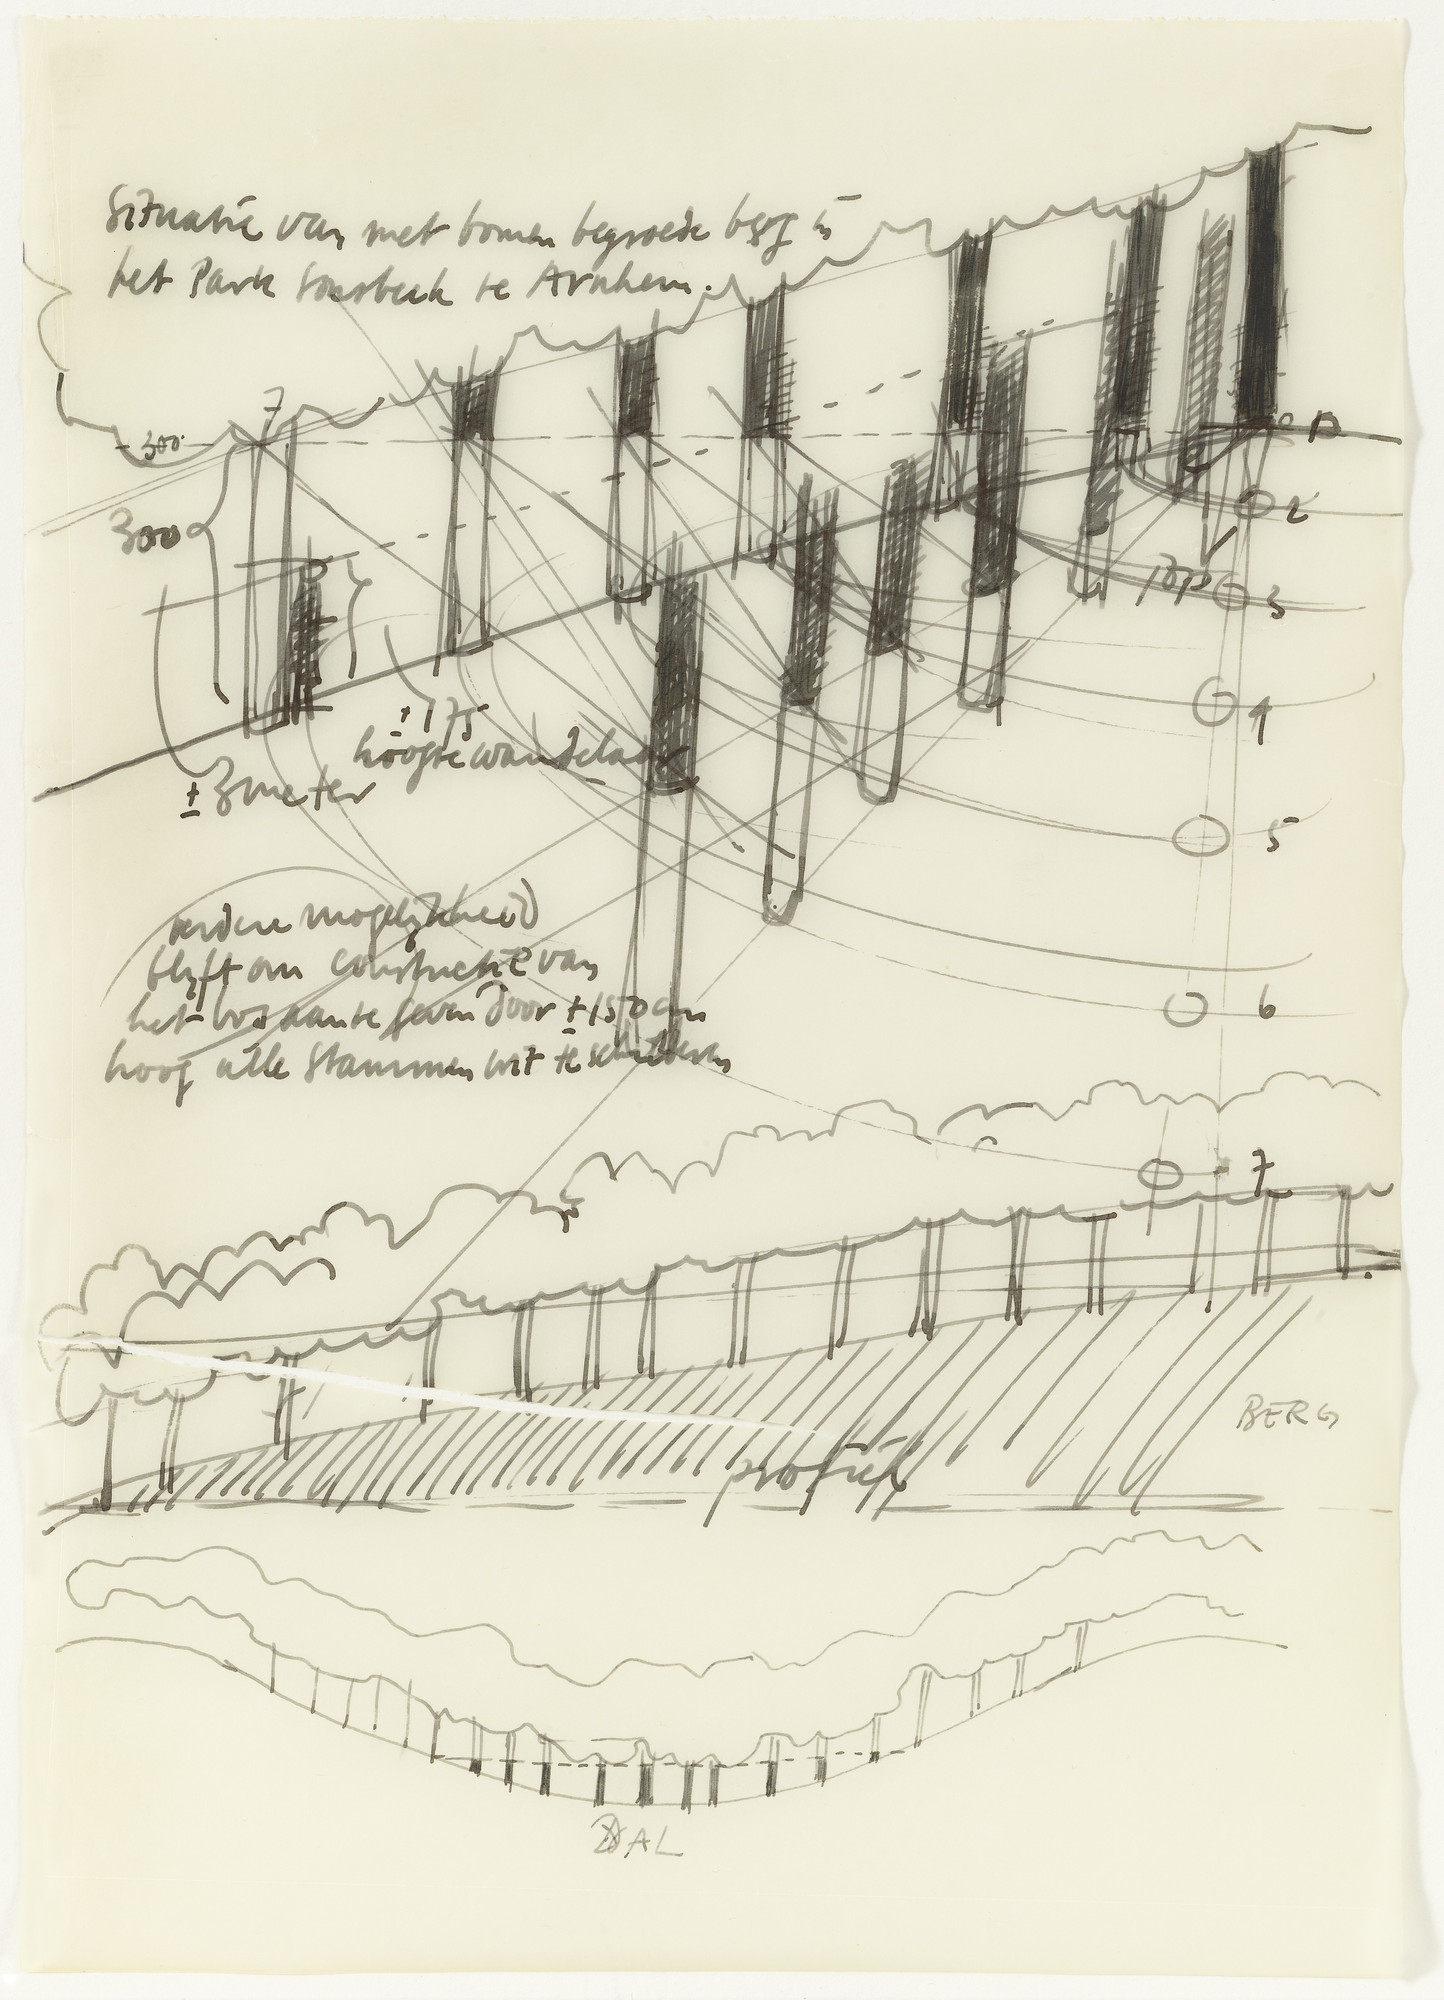 Situatie van met bomen begroeide berg in
het Park Sonsbeek te Arnhem.
7
- 300
300
± 175
hoogte wandelaar
± 3 meter
2
3
4
5
6
7
verdere mogelijkheid
blijft om constructie van
het bos aan te geven door ± 150 cm
hoog alle stammen wit te schilderen
BERG
profiel
DAL